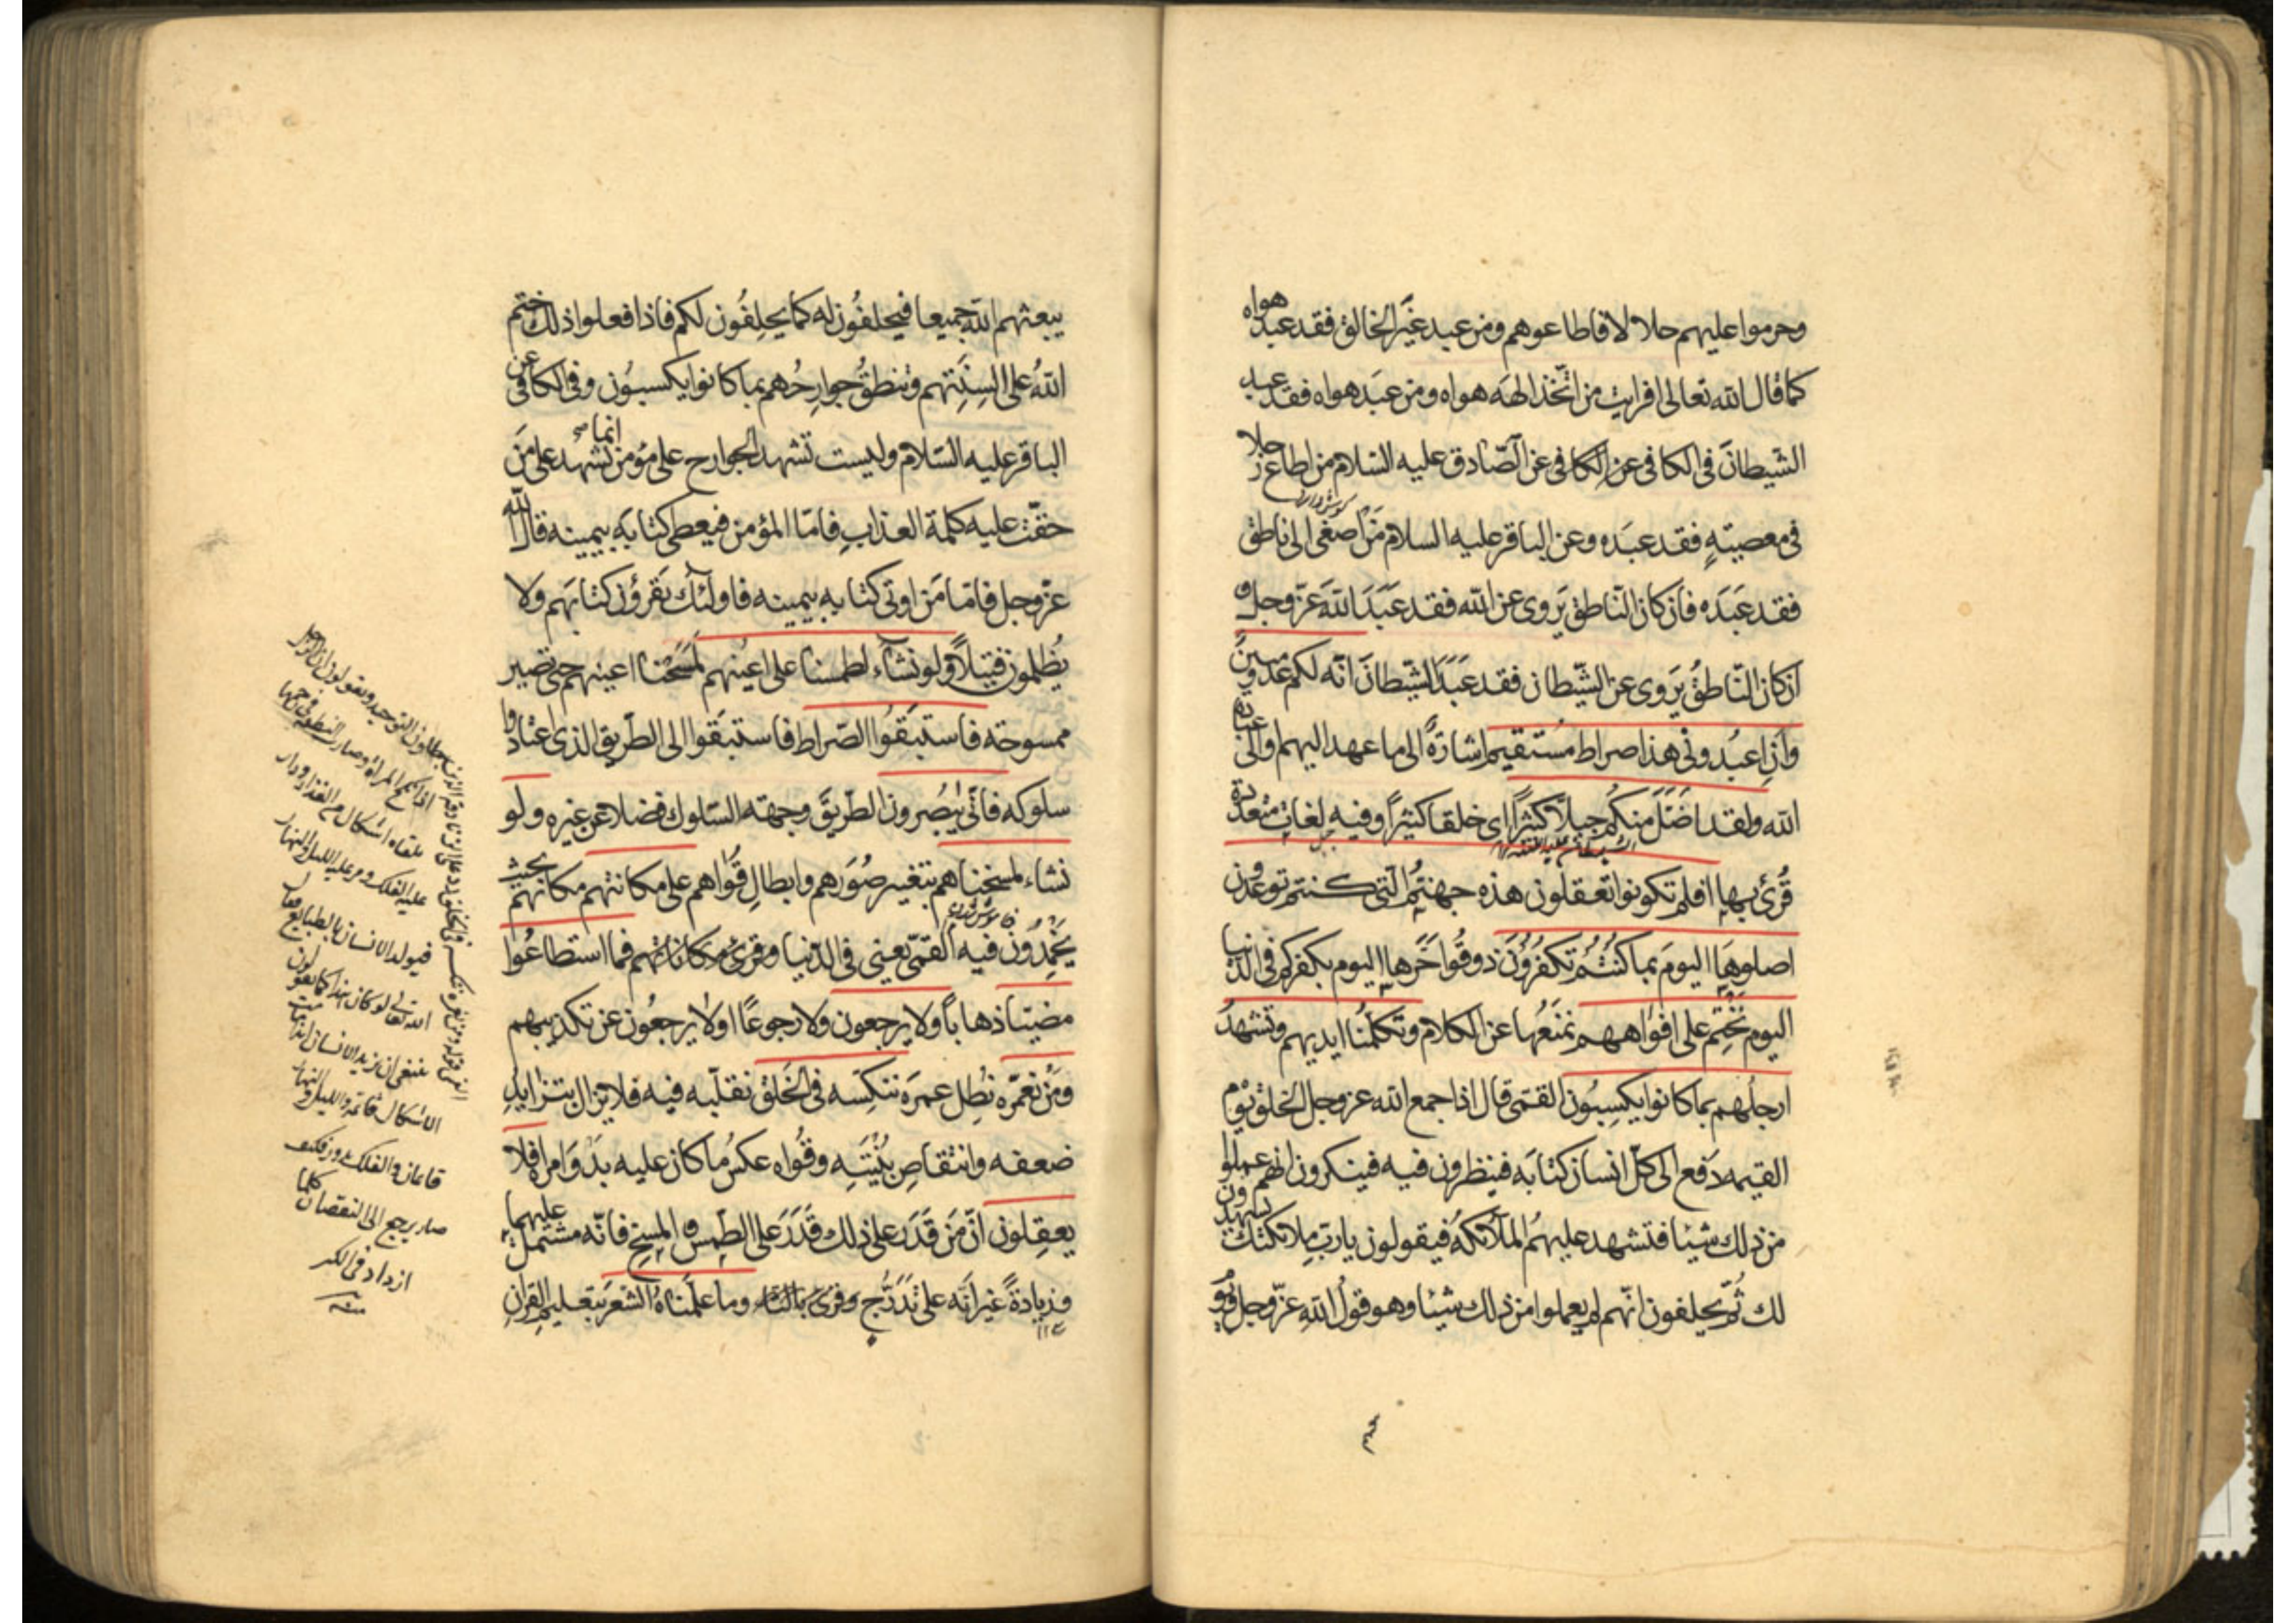 وحرموا عليهم حلالا فاطاعوهم ومن عبد غير الخالق فقد عبد هواه
كما قال الله تعالى افرايت من اتّخذ الهه هواه ومن عبَد هواه فقد عبد
الشّيطانَ فى الكافى عن الكافى عن الصّادق عليه السّلام من اطاع رجلا
فى معصيتهٍ فقد عبَده وعن الباقر عليه السلام مَن اصغى الى ناطق
فقد عبَدَه فان كان النّاطق يَروى عن الله فقد عبَدَ اللهَ عزّ وجل و
ان كان النّاطقُ يَروى عن الشّيطان فقد عبَدَ الشّيطانَ انّه لكم عدوّ مبينٌ
وان اعبُدونى هذا صراط مُستقيم اشارَةً الى ما عهد اليهم والى عبادة
الله ولقد اضَلّ منكُم جبلاً كثيرًا اى خلقا كثيرًا وفيه لغات متعدّدة
قُرئ بها افلم تكونوا تعقلون هذه جهنّمُ الّتى كنتم توعدون
اصلوهَا اليومَ بما كنتُم تكفرُونَ ذوقُوا حَرّها اليوم بكفركم فى الدّنيا
اليوم نَختِم على افوَاههم نمنَعُها عن الكلام وتكلمُنا ايديهم وتشهدُ
ارجلُهم بما كانوا يكسِبُون القمّى قال اذا جمع الله عز وجل الخلق يوْم
القيمه دَفع الى كلّ انسان كتابَه فينظرون فيه فينكرون انّهم عملوا
من ذلك شيئا فتشهد عليهمُ الملآئكة فيقولون يا ربّ ملائكتك يشهدون
لك ثُمّ يحلفون انّهم لم يعملوا من ذلك شيئا وهو قولُ اللهِ عزّ وجل يوم
يبعثهم اللهُ جميعا فيحلفُون له كما يحلِفُون لكم فاذا فعلوا ذلك ختم
اللهُ على السِنَتهم وتنطقُ جوارِحُهم بما كانوا يكسبُون وفى الكافى عن
الباقر عليه السّلام وليست تشهد الجوارح على مؤمن انما تشهد على مَن
حقّت عليه كلمة العذابِ فامّا المؤمن فيعطى كتابَه بيمينه قال الله
عزّ وجل فامّا مَن اوتى كتابه بيمينه فاولئك يَقرؤن كتابَهم ولا
يُظلمون فتيلاً ولو نشآء لطمسنا على اعيُنهم لمسَحْنا اعينهم حتى تصير
ممسوحة فاستبَقُوا الصّراط فاستبَقوا الى الطّريق الذى اعتادوا
سلوكه فانّى يُبْصِرون الطّريقَ وجهة السّلوك فضلا عن غيره ولو
نشاء لمسخناهم بتغيير صُوَرهم وابطالِ قُوَاهم على مكانتهم مكانهم بحيث
يَجْمدُون فيه القمّى يعنى فى الدّنيا وقرئ مكاناتهم فما استطاعُوا
مضيّا ذهابا ولا يرجعون ولا رجوعًا او لا يرجعُون عن تكذيبهم
ومَنْ نعَمّره نُطِل عمرَه ننكِسه فى الخَلق نقلّبه فيه فلا يزال يتزايد
ضعفه وانتقاص بُنيَتِه وقُواه عكسُ ما كان عليه بدَوَ امره افلا
يعقِلون انّ مَن قَدَرَ على ذلك قَدَرَ على الطّمس والمسخِ فانّه مشتمل عليهما
وزيادةً غيرَ انّه على تَدَرُّج وقرئ بالتاء وما علّمناهُ الشّعرَ بتعليم القرانِ
اذا نكح المراة وصارت النطفة فى رحمها
تلقاه اشكال من الغذا ودار
عليه الفلك ومر عليه الليل والنهار
فيولد الانسان بالطبايع فقال
الله تعالى لو كان هذا كما يقولون
ينبغى ان يزيد الانسان ابدا ما دامت
الاشكال قائمة والليل والنهار
قائمان والفلك يدور فكيف
صار يرجع الى النقصان كلما
ازداد فى الكبر
منه
١١٤